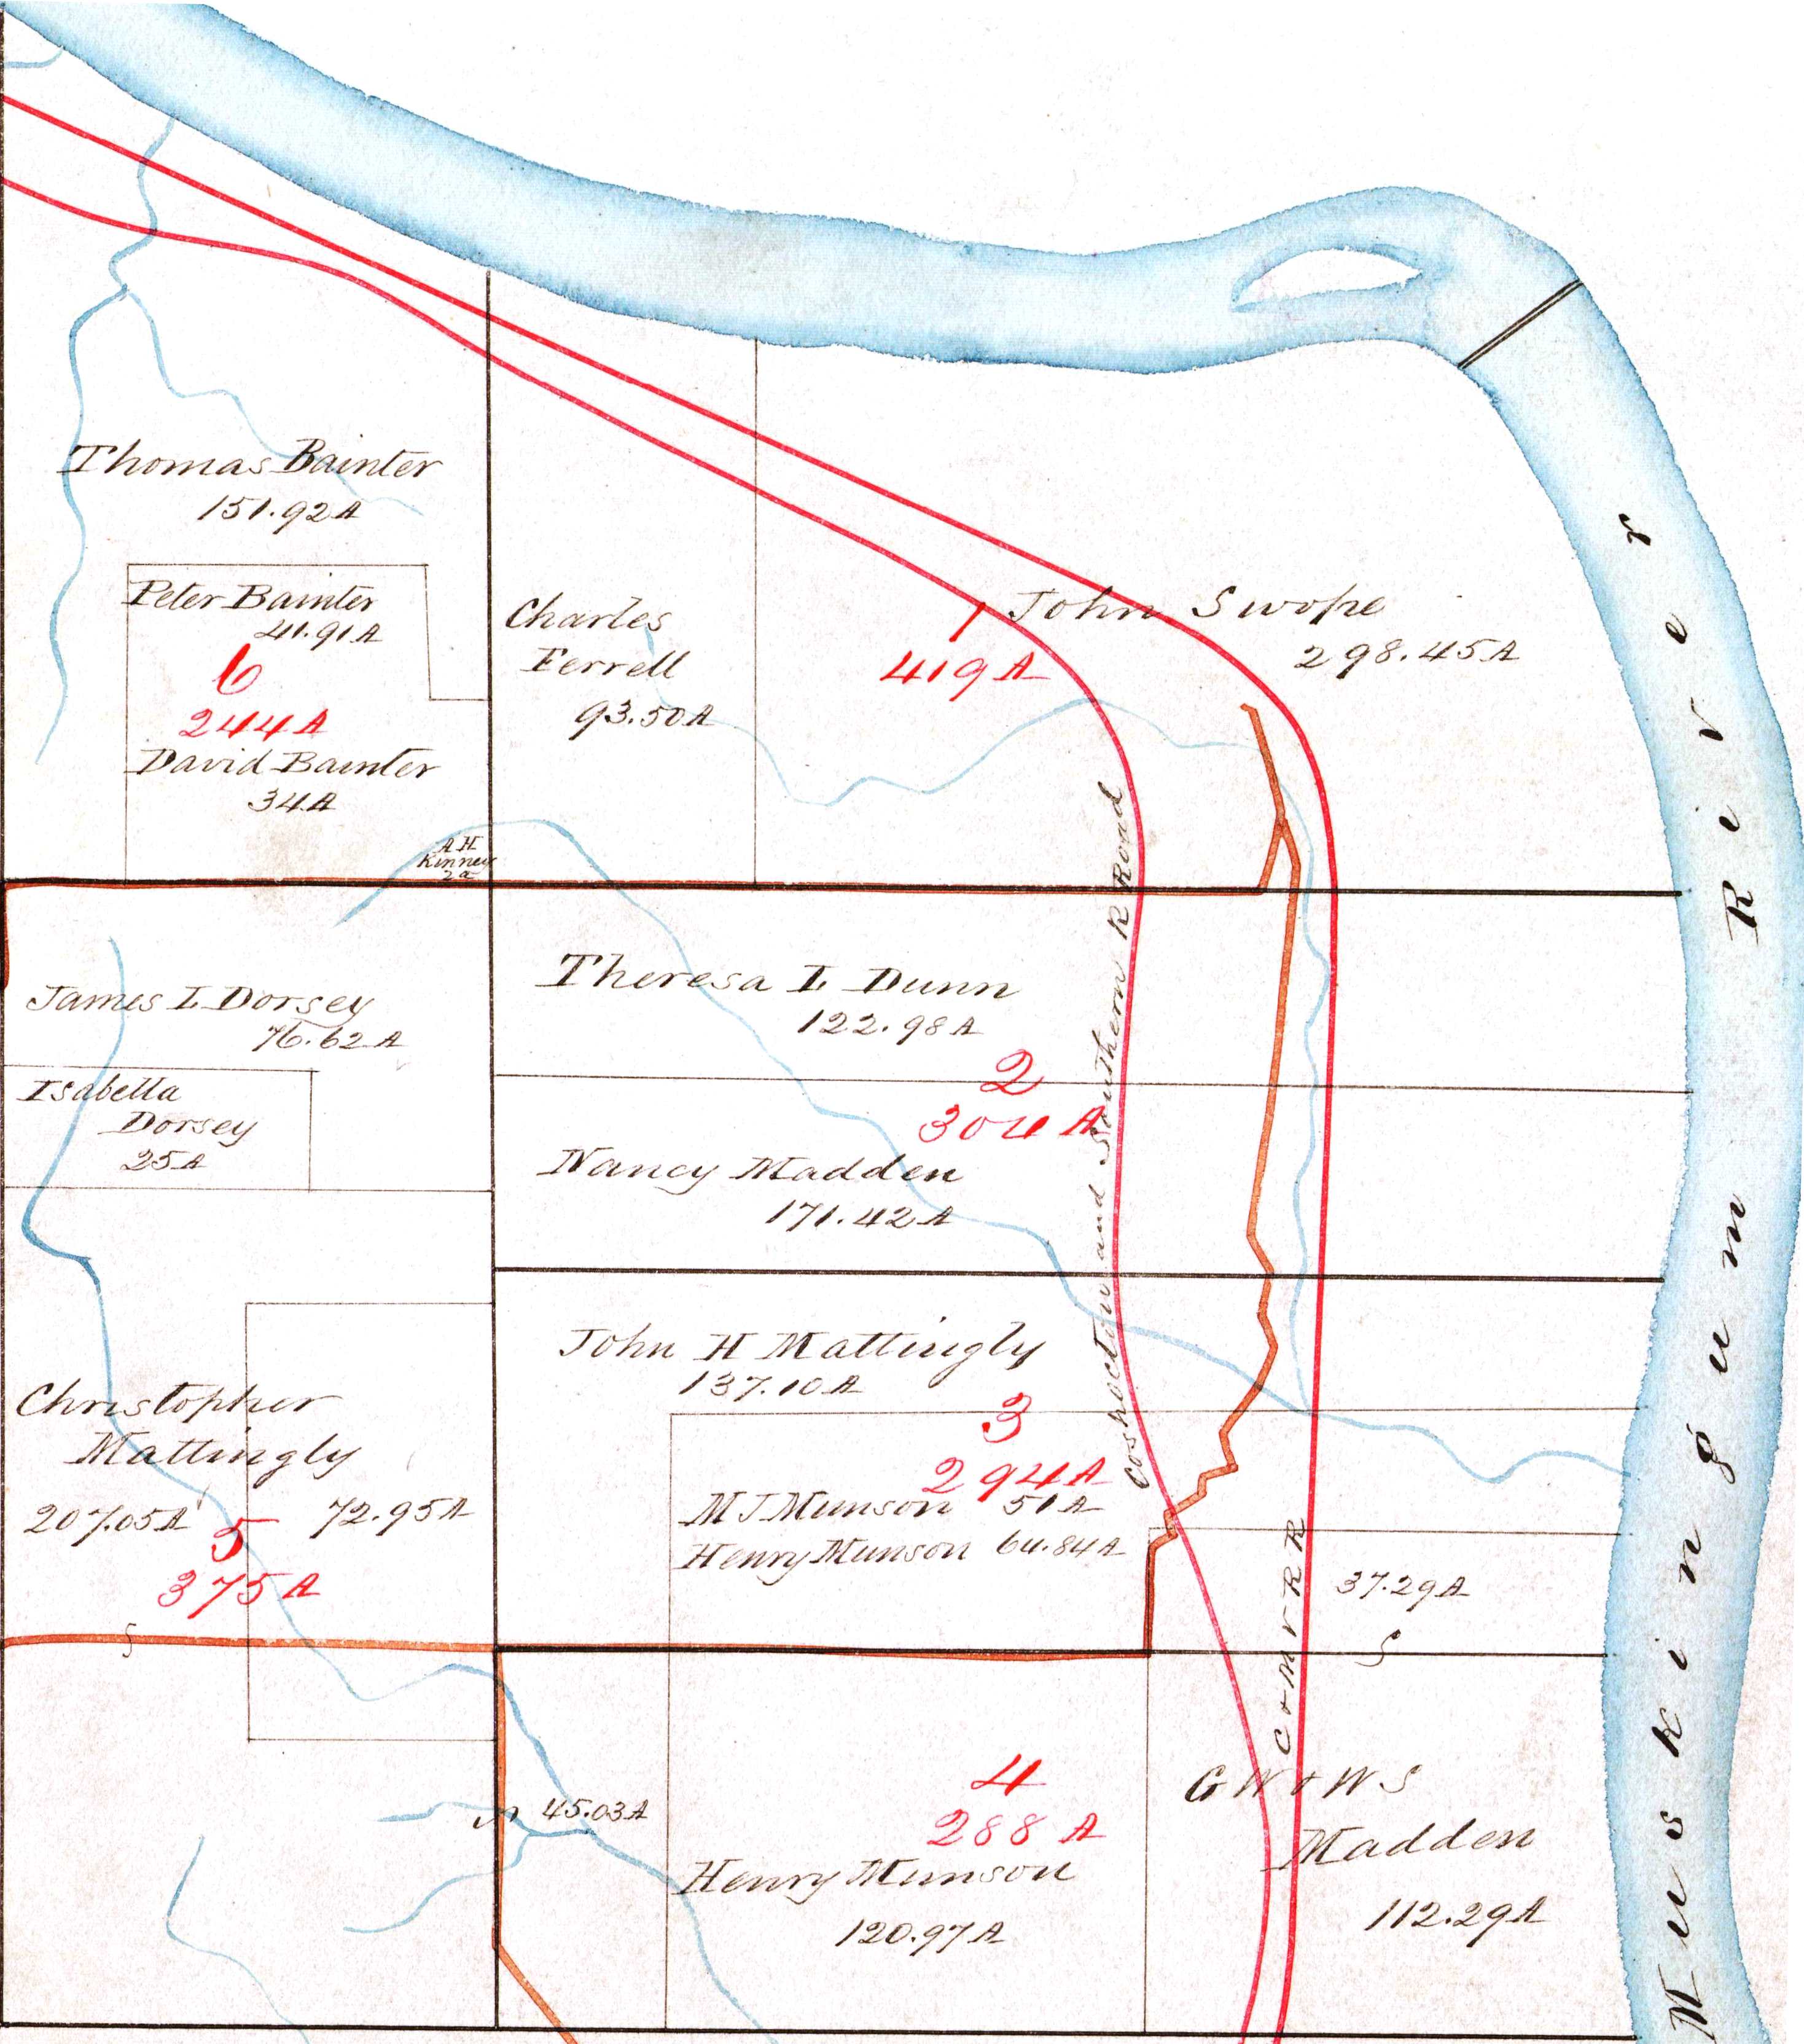 Thomas Bainter
151.92A
Peter Bainter
41.91A
6
244A
David Bainter
34A
A H
Kinney
2a
Charles
Ferrell
93.50A
1
419A
John Swope
298.45A
James L Dorsey
76.62A
Isabella
Dorsey
25A
Theresa L Dunn
122.98A
2
304A
Nancy Madden
171.42A
Coshocton and Southern R Road
John H Mattingly
137.10A
3
294A
M J Munson 51A
Henry Munson 64.84A
Christopher
Mattingly
207.05A
72.95A
5
375A
37.29A
S
S
C & M V R R
45.03A
4
288A
Henry Munson
120.97A
G W & W S
Madden
112.29A
Muskingum River